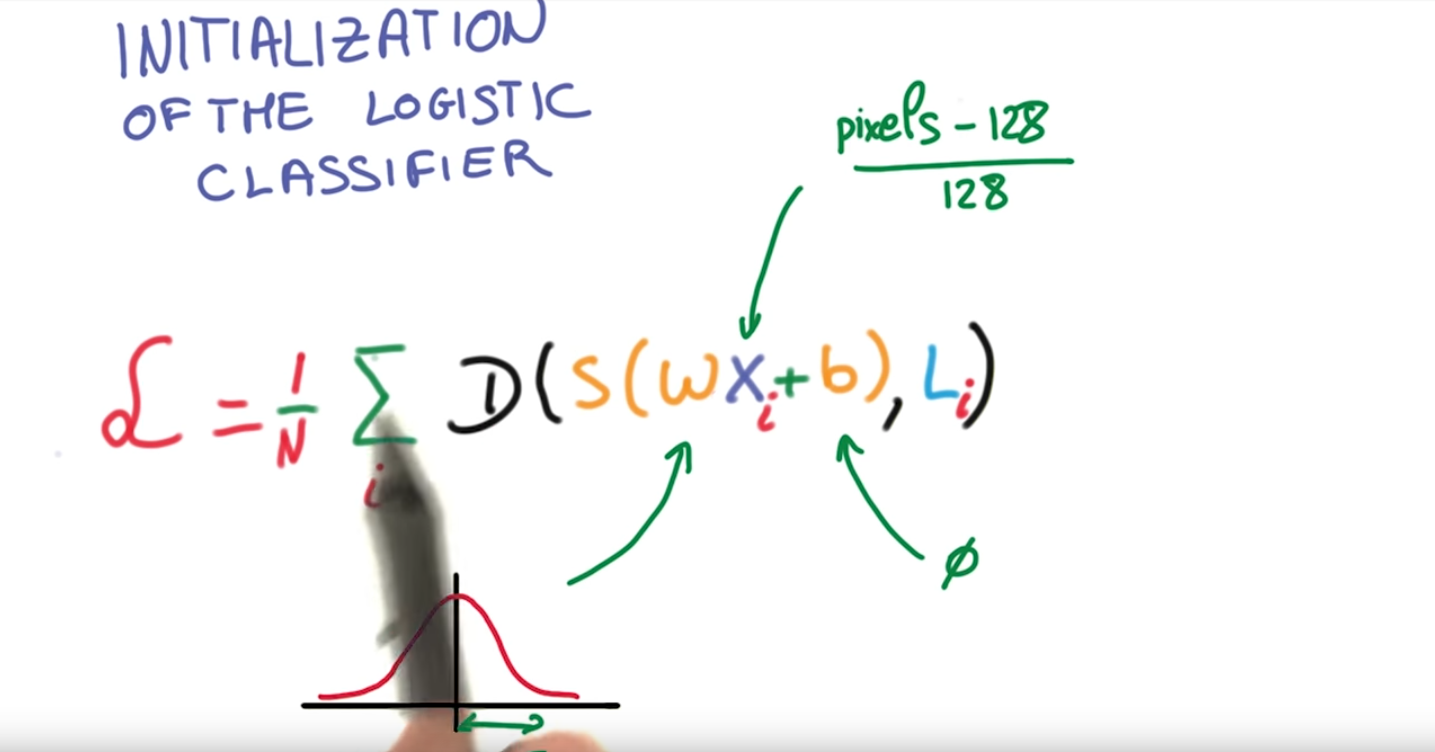 INITIALIZATION
OF THE LOGISTIC
CLASSIFIER
pixels - 128
128
ℒ = 1/N Σ_i D(S(wx_i + b), L_i)
φ